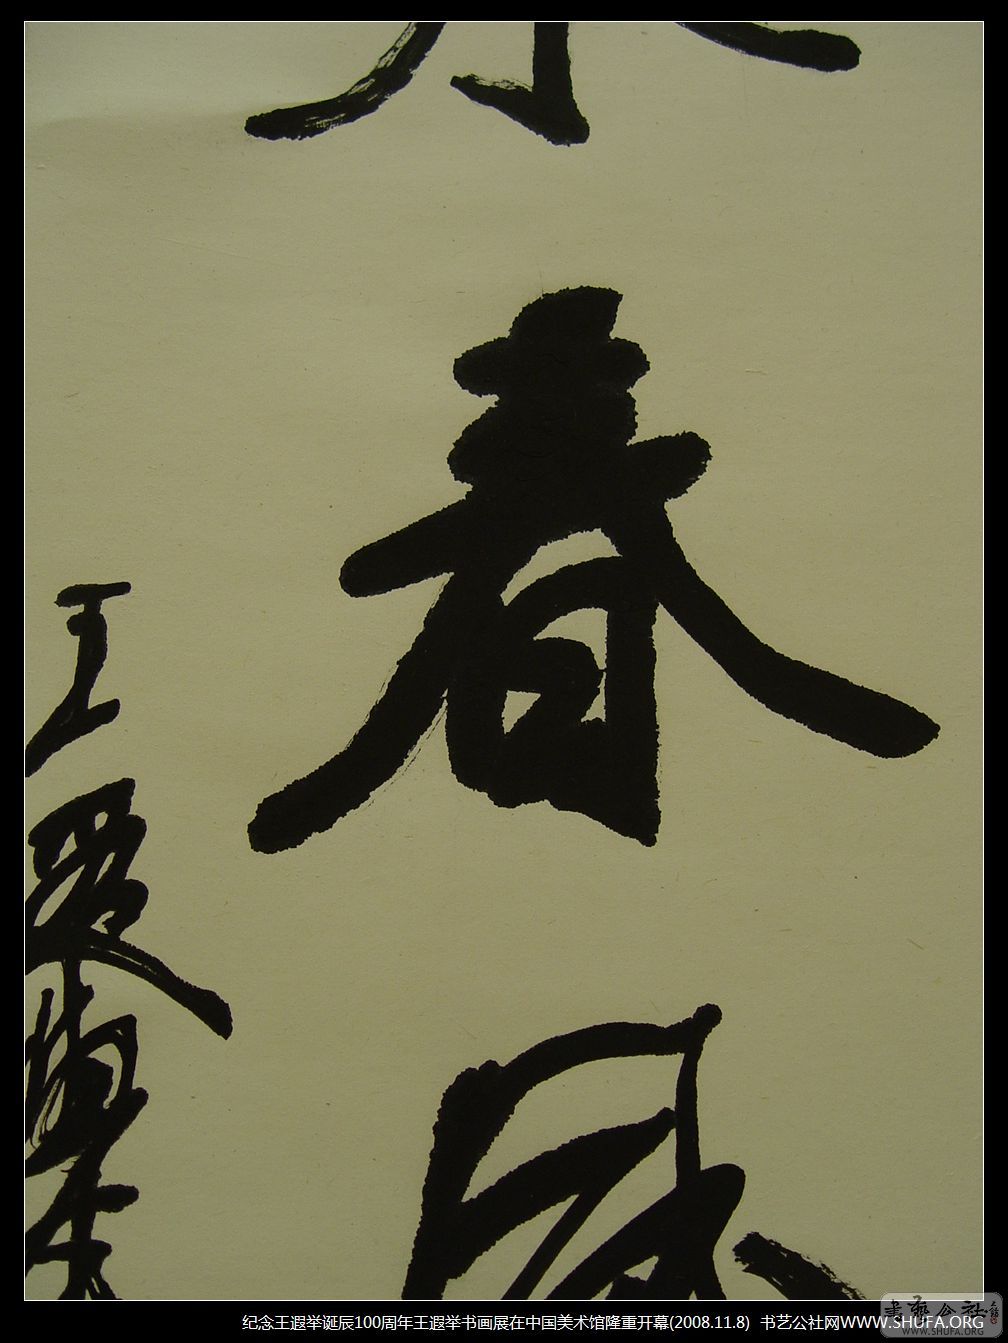 春
风
王遐举
纪念王遐举诞辰100周年王遐举书画展在中国美术馆隆重开幕(2008.11.8) 书艺公社网WWW.SHUFA.ORG
书艺公社
WWW.SHUFA.ORG